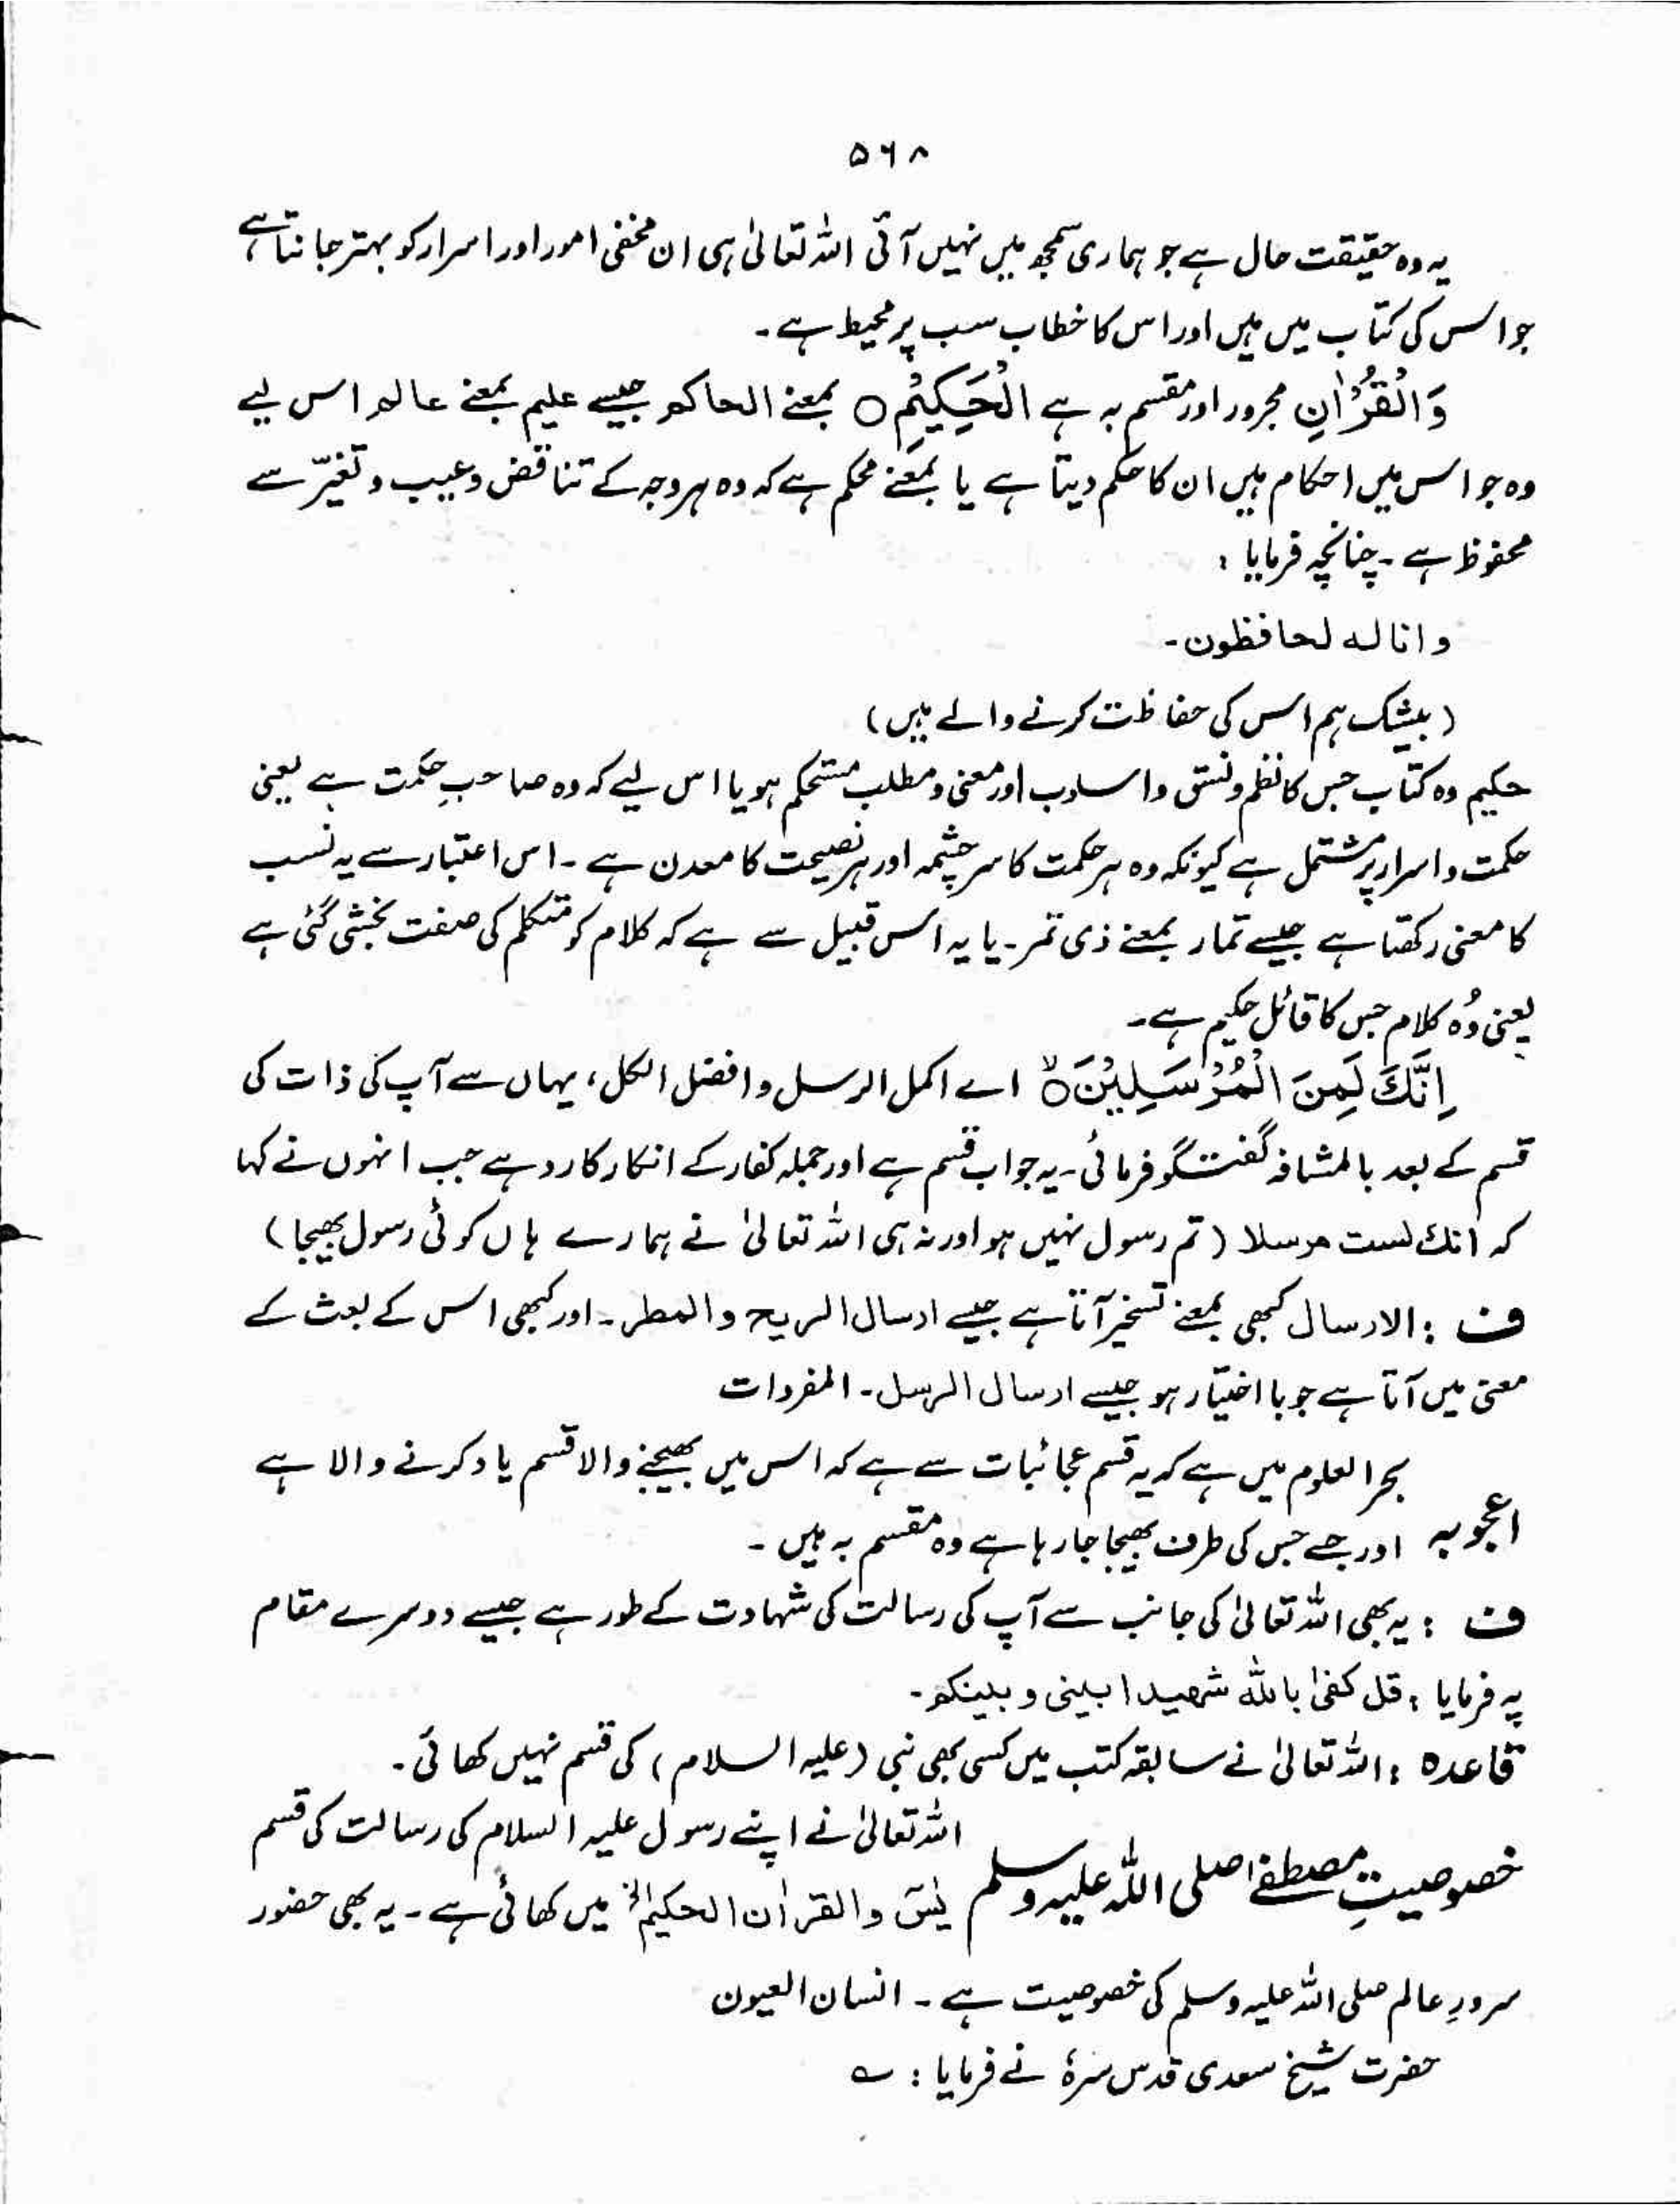 ۵۶۸
یہ وہ حقیقت حال ہے جو ہماری سمجھ میں نہیں آئی اللہ تعالیٰ ہی ان مخفی امور اور اسرار کو بہتر جانتا ہے
جو اس کی کتاب میں ہیں اور اس کا خطاب سب پر محیط ہے۔
وَالْقُرْاٰنِ مجرور اور مقسم بہ ہے الْحَكِيْمِ ○ بمعنے الحاکم جیسے علیم بمعنے عالم اس لیے
وہ جو اس میں احکام ہیں ان کا حکم دیتا ہے یا بمعنے محکم ہے کہ وہ ہر وجہ کے تناقض و عیب و تغیّر سے
محفوظ ہے۔ چنانچہ فرمایا :
و انا له لحافظون۔
(بیشک ہم اس کی حفاظت کرنے والے ہیں)
حکیم وہ کتاب جس کا نظم و نسق و اسلوب اور معنی و مطلب مستحکم ہو یا اس لیے کہ وہ صاحبِ حکمت ہے یعنی
حکمت و اسرار پر مشتمل ہے کیونکہ وہ ہر حکمت کا سرچشمہ اور ہر نصیحت کا معدن ہے۔ اس اعتبار سے یہ نسب
کا معنی رکھتا ہے جیسے تمار بمعنے ذی تمر۔ یا یہ اس قبیل سے ہے کہ کلام کو متکلم کی صفت بخشی گئی ہے
یعنی وُہ کلام جس کا قائل حکیم ہے۔
اِنَّكَ لَمِنَ الْمُرْسَلِيْنَ ○ اے اکمل الرسل و افضل الکل، یہاں سے آپ کی ذات کی
قسم کے بعد بالمشافہ گفتگو فرمائی۔ یہ جواب قسم ہے اور جملہ کفار کے انکار کا رد ہے جب انہوں نے کہا
کہ انك لست مرسلا (تم رسول نہیں ہو اور نہ ہی اللہ تعالیٰ نے ہمارے ہاں کوئی رسول بھیجا)
ف : الارسال کبھی بمعنے تسخیر آتا ہے جیسے ارسال الریح و المطر۔ اور کبھی اس کے بعث کے
معنی میں آتا ہے جو با اختیار ہو جیسے ارسال الرسل۔ المفردات
بحر العلوم میں ہے کہ یہ قسم عجائبات سے ہے کہ اس میں بھیجنے والا قسم یاد کرنے والا ہے
اعجوبہ اور جسے جس کی طرف بھیجا جا رہا ہے وہ مقسم بہ ہیں۔
ف : یہ بھی اللہ تعالیٰ کی جانب سے آپ کی رسالت کی شہادت کے طور ہے جیسے دوسرے مقام
پہ فرمایا : قل كفىٰ بالله شهيدا بينى و بينكم۔
قاعدہ : اللہ تعالیٰ نے سابقہ کتب میں کسی بھی نبی (علیہ السلام) کی قسم نہیں کھائی۔
اللہ تعالیٰ نے اپنے رسول علیہ السلام کی رسالت کی قسم
خصوصیتِ مصطفےٰ صلی اللہ علیہ وسلم یٰسۤ والقراٰن الحکیم الخ میں کھائی ہے۔ یہ بھی حضور
سرورِ عالم صلی اللہ علیہ وسلم کی خصوصیت ہے۔ انسان العیون
حضرت شیخ سعدی قدس سرہٗ نے فرمایا : ؎